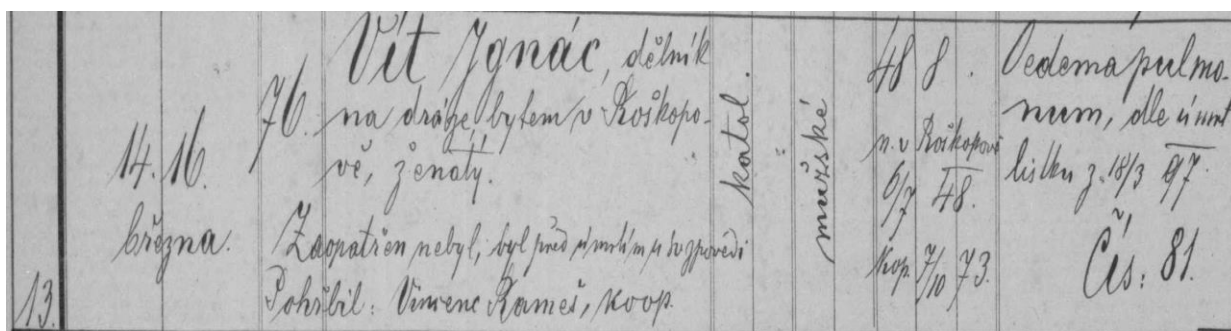 13.
14. 16.
března.
76.
Vít Ignác, dělník
na dráze, bytem v Roškopo-
vě, ženatý.
Zaopatřen nebyl, byl před úmrtím u sv. zpovědi
Pohřbil: Vincenc Kameš, koop.
katol.
mužské
48 8.
n. v Roškopově
6/7 48.
kop. 7/10 73.
Oedema pulmo-
num, dle úmrt
lístku z. 18/3 97.
Čís: 81.